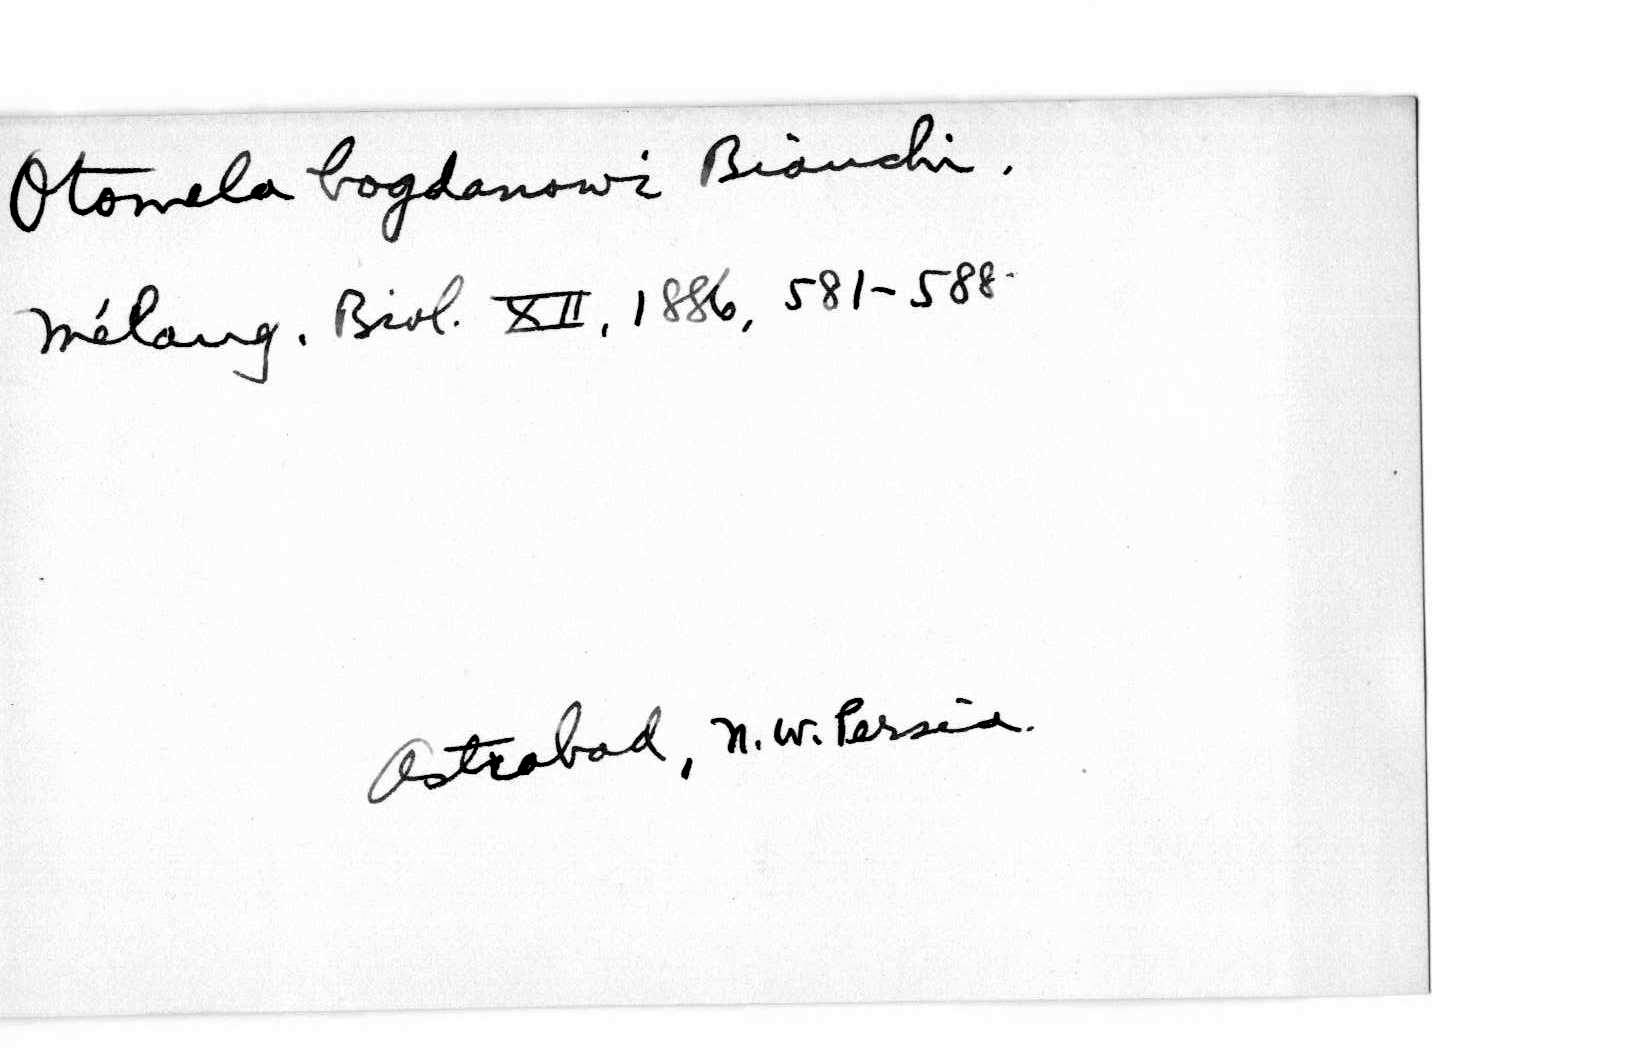 Otomela bogdanowi Bianchi.
Mélang. Biol. XII, 1886, 581-588.
Astrabad, N.W. Persia.